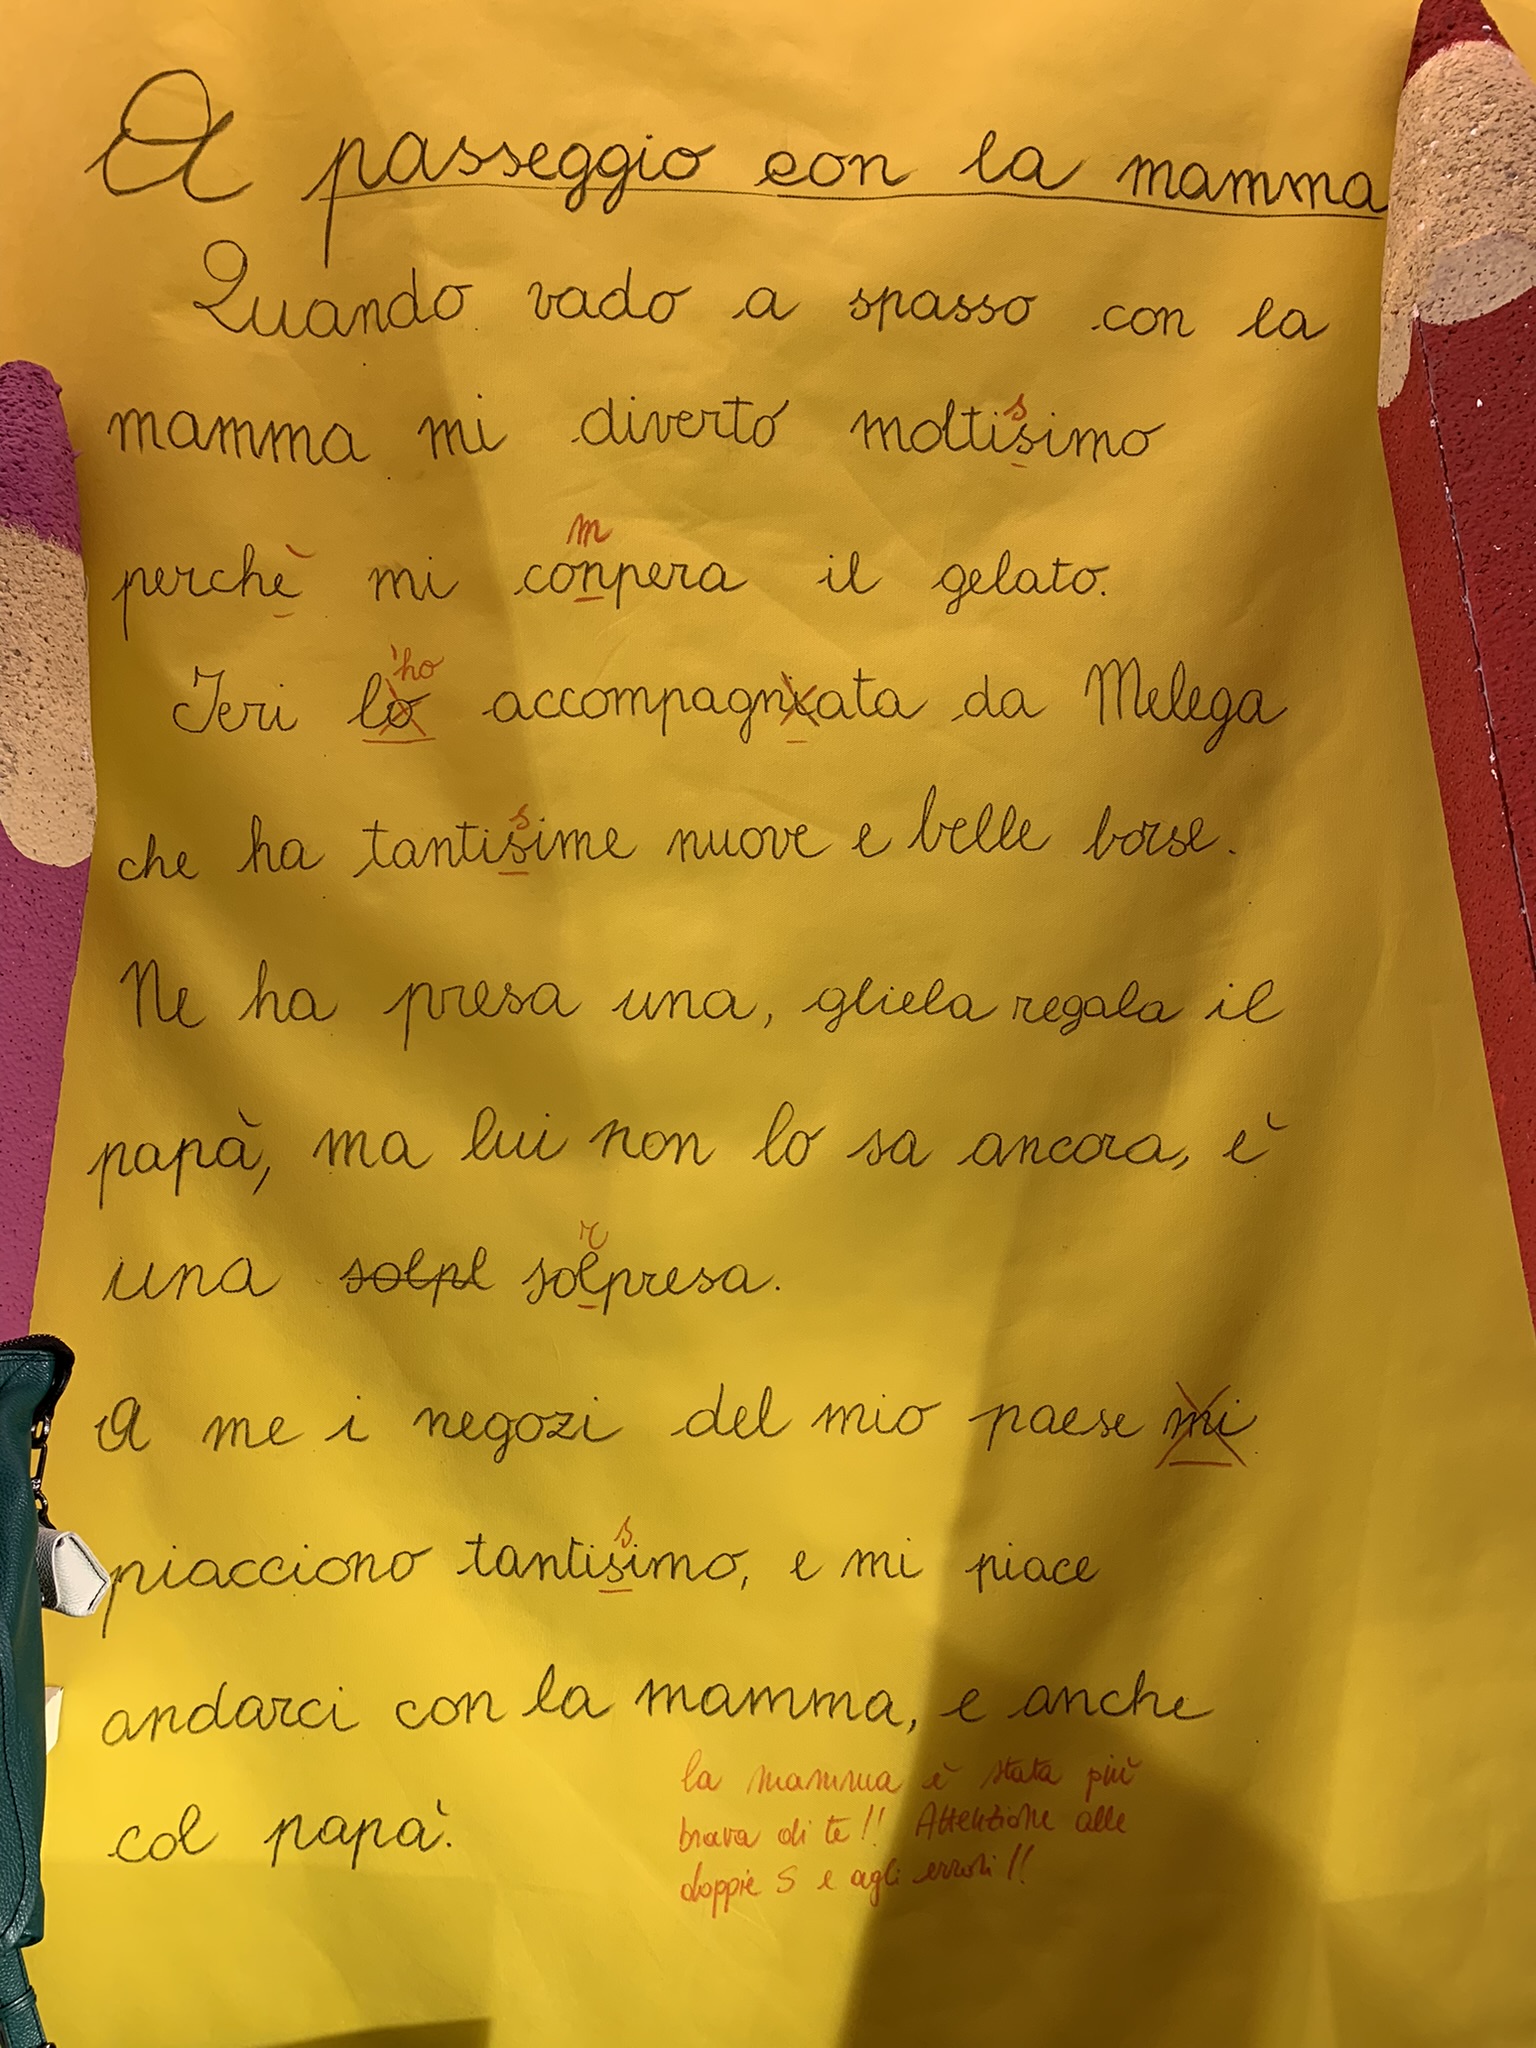 A passeggio con la mamma
Quando vado a spasso con la
s
mamma mi diverto moltisimo
m
perchè mi conpera il gelato.
'ho
Ieri lo accompagniata da Melega
s
che ha tantisime nuove e belle borse.
Ne ha presa una, gliela regala il
papà, ma lui non lo sa ancora, è
r
una solpl solpresa.
A me i negozi del mio paese mi
s
piacciono tantisimo, e mi piace
andarci con la mamma, e anche
col papà.
la mamma è stata più
brava di te!! Attenzione alle
doppie S e agli errori!!